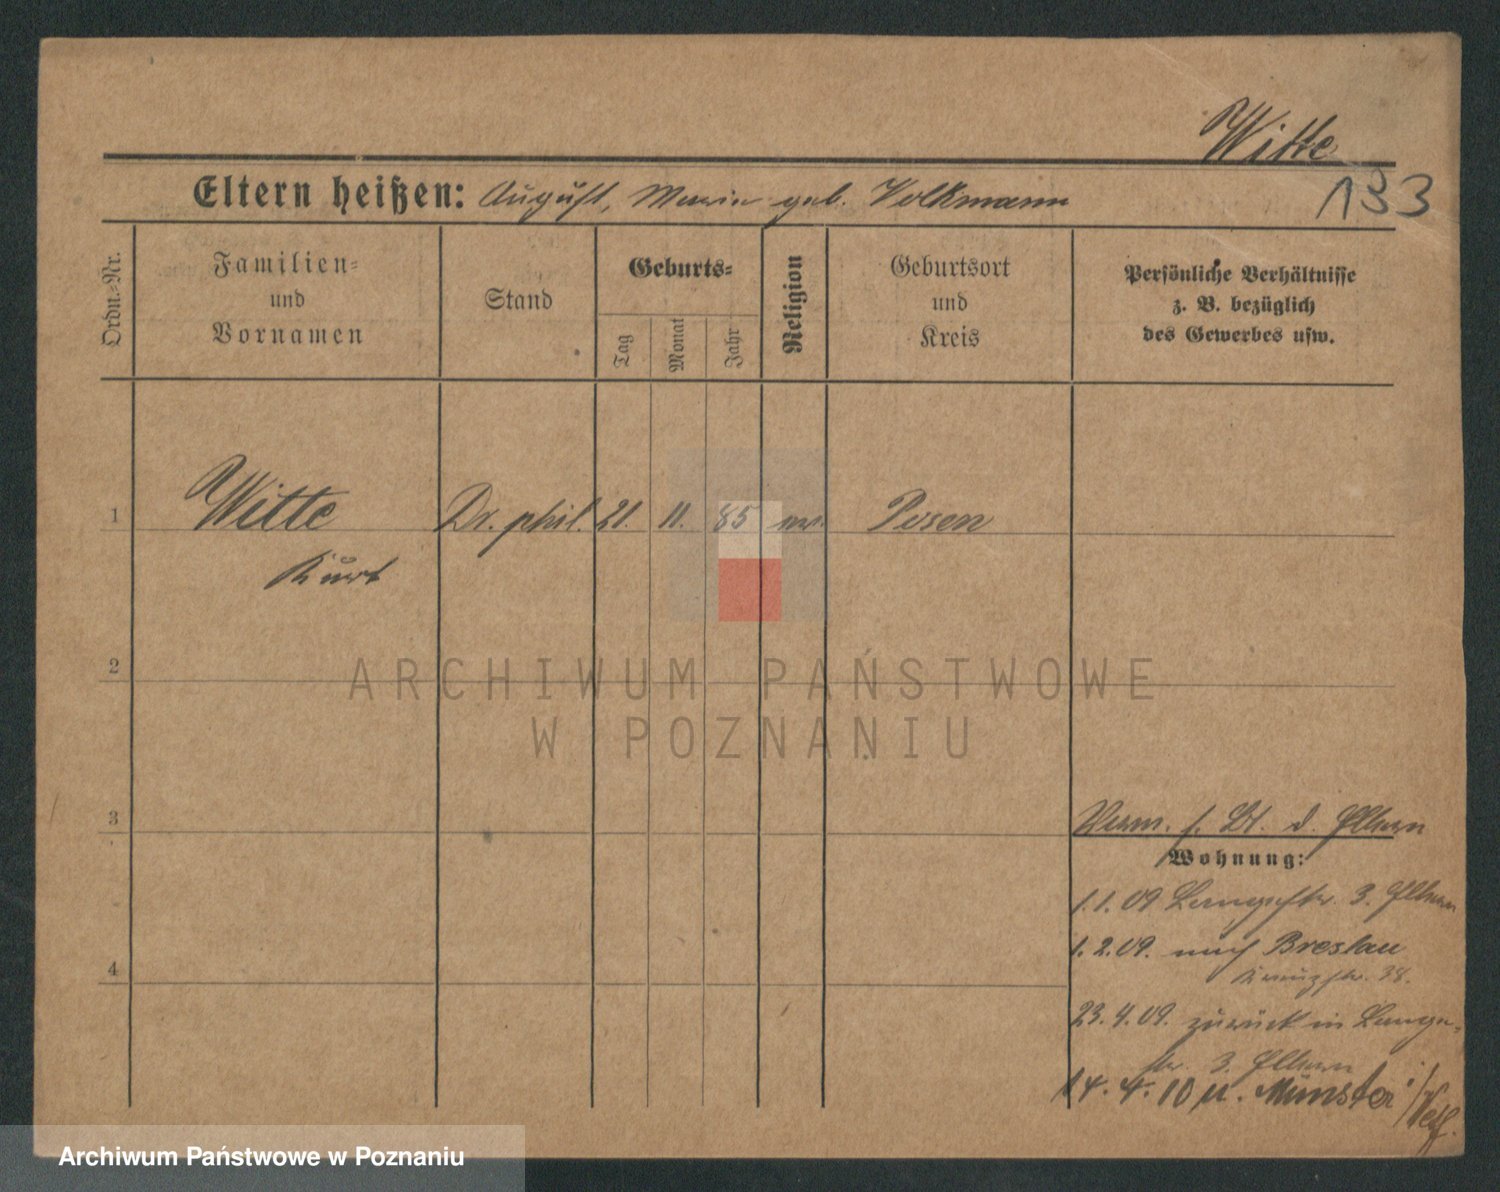 Witte
133
Eltern heißen: August, Maria geb. Volkmann
Ordn.-Nr.
Familien-
und
Vornamen
Stand
Geburts-
Tag
Monat
Jahr
Religion
Geburtsort
und
Kreis
Persönliche Verhältnisse
z. B. bezüglich
des Gewerbes usw.
1 Witte Dr. phil. 21. 11. 85 Posen
Kurt
2
ARCHIWUM PAŃSTWOWE
W POZNANIU
3
Verm. s. Bl. d. Eltern
Wohnung:
1.1.09 Langestr. 3. Eltern
1.2.09. nach Breslau
4
Kreuzstr. 38.
23.4.09. zurück in Lange-
str. 3. Eltern
14.4.10 n. Münster i/Westf.
Archiwum Państwowe w Poznaniu